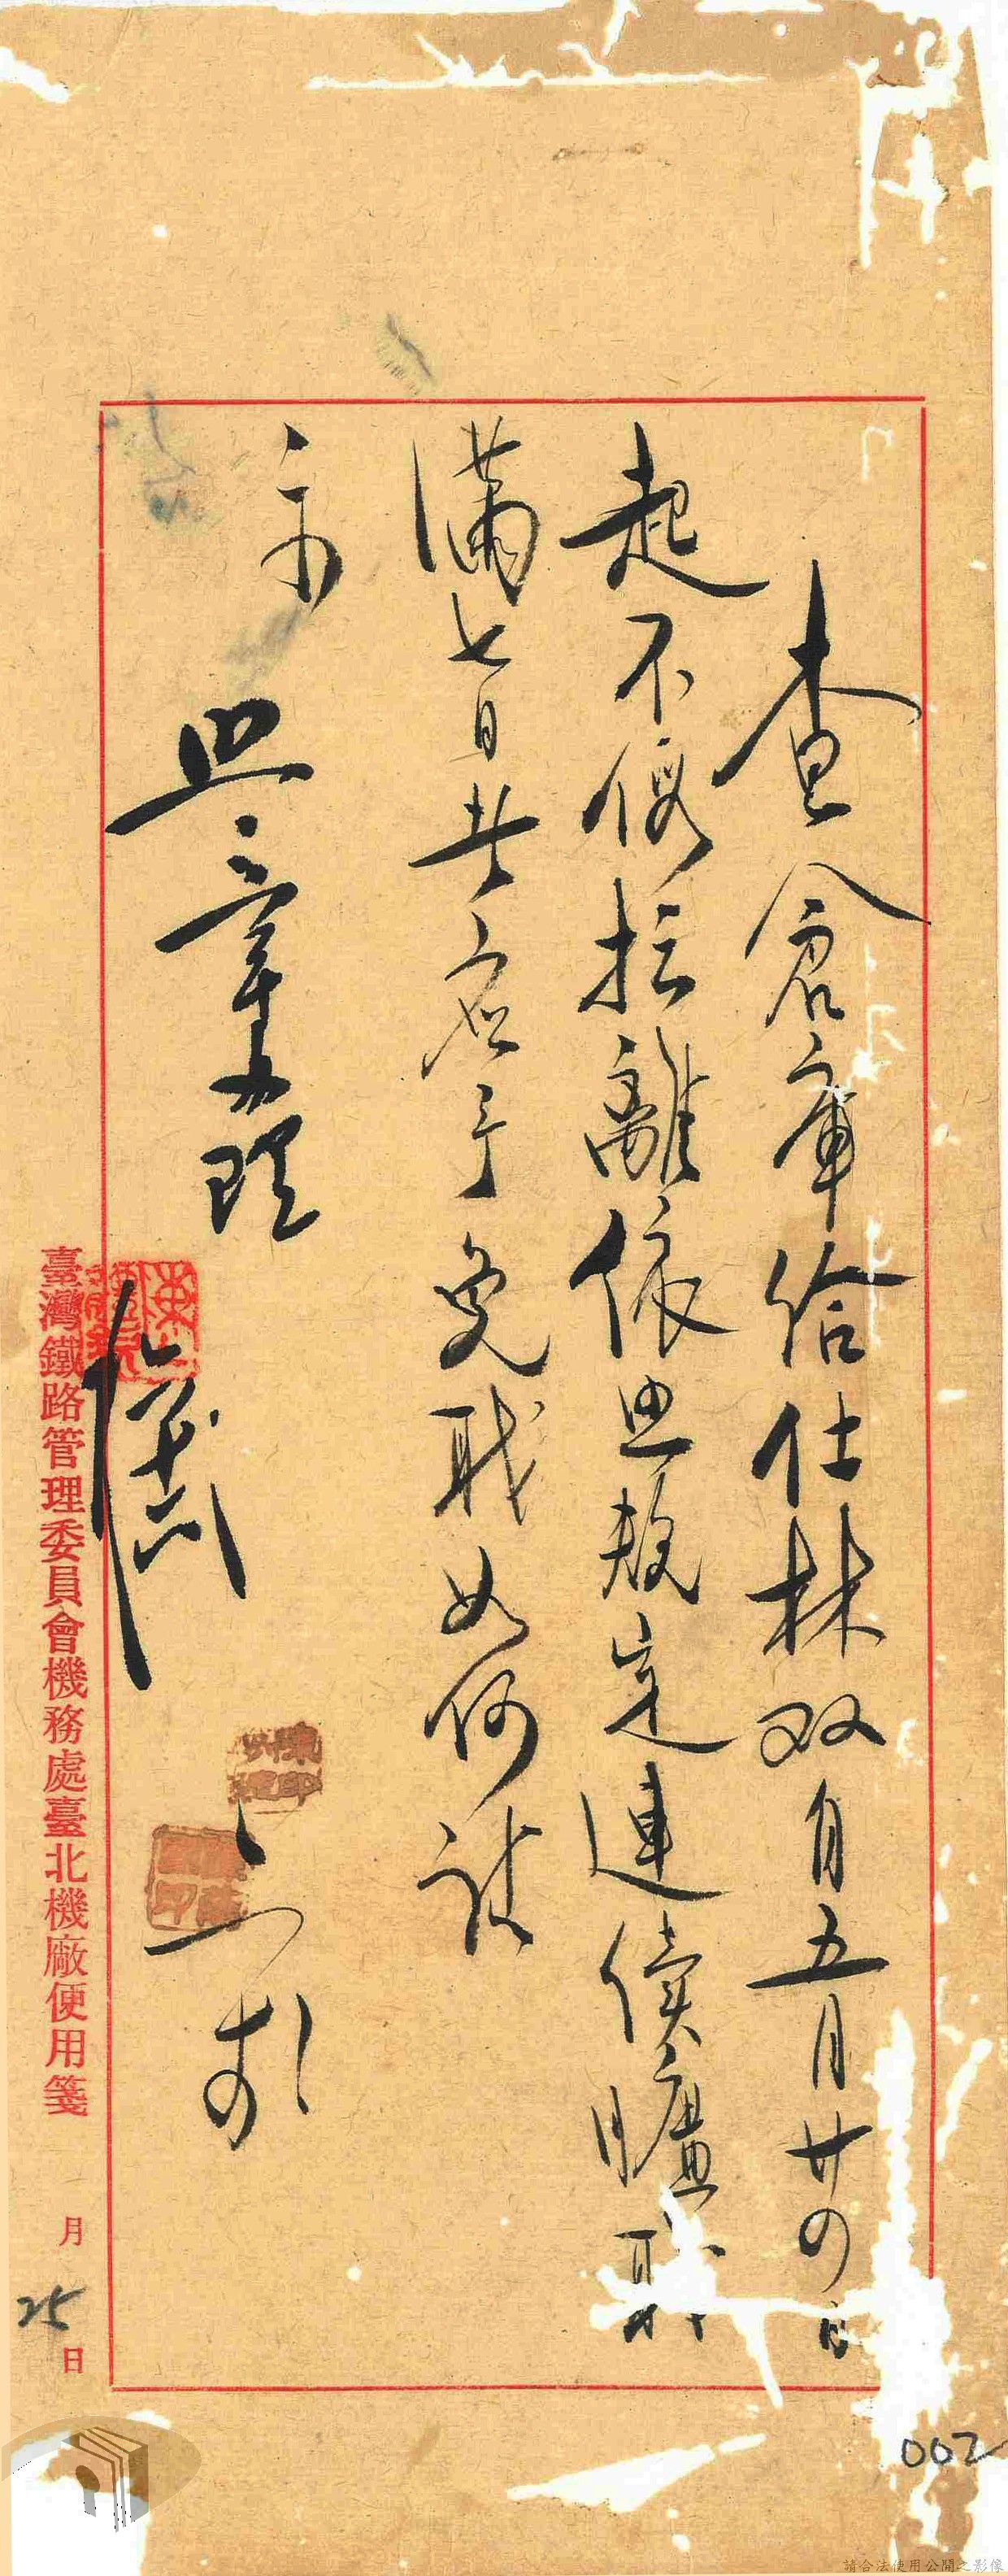 查倉庫給仕林双自五月廿四日
起不假擅離依照規定連續曠職
滿七日者應予免職如何請
示
照章辦理
六 三 廿五
臺灣鐵路管理委員會機務處臺北機廠便用箋 月 25 日
002
請合法使用公開之影像